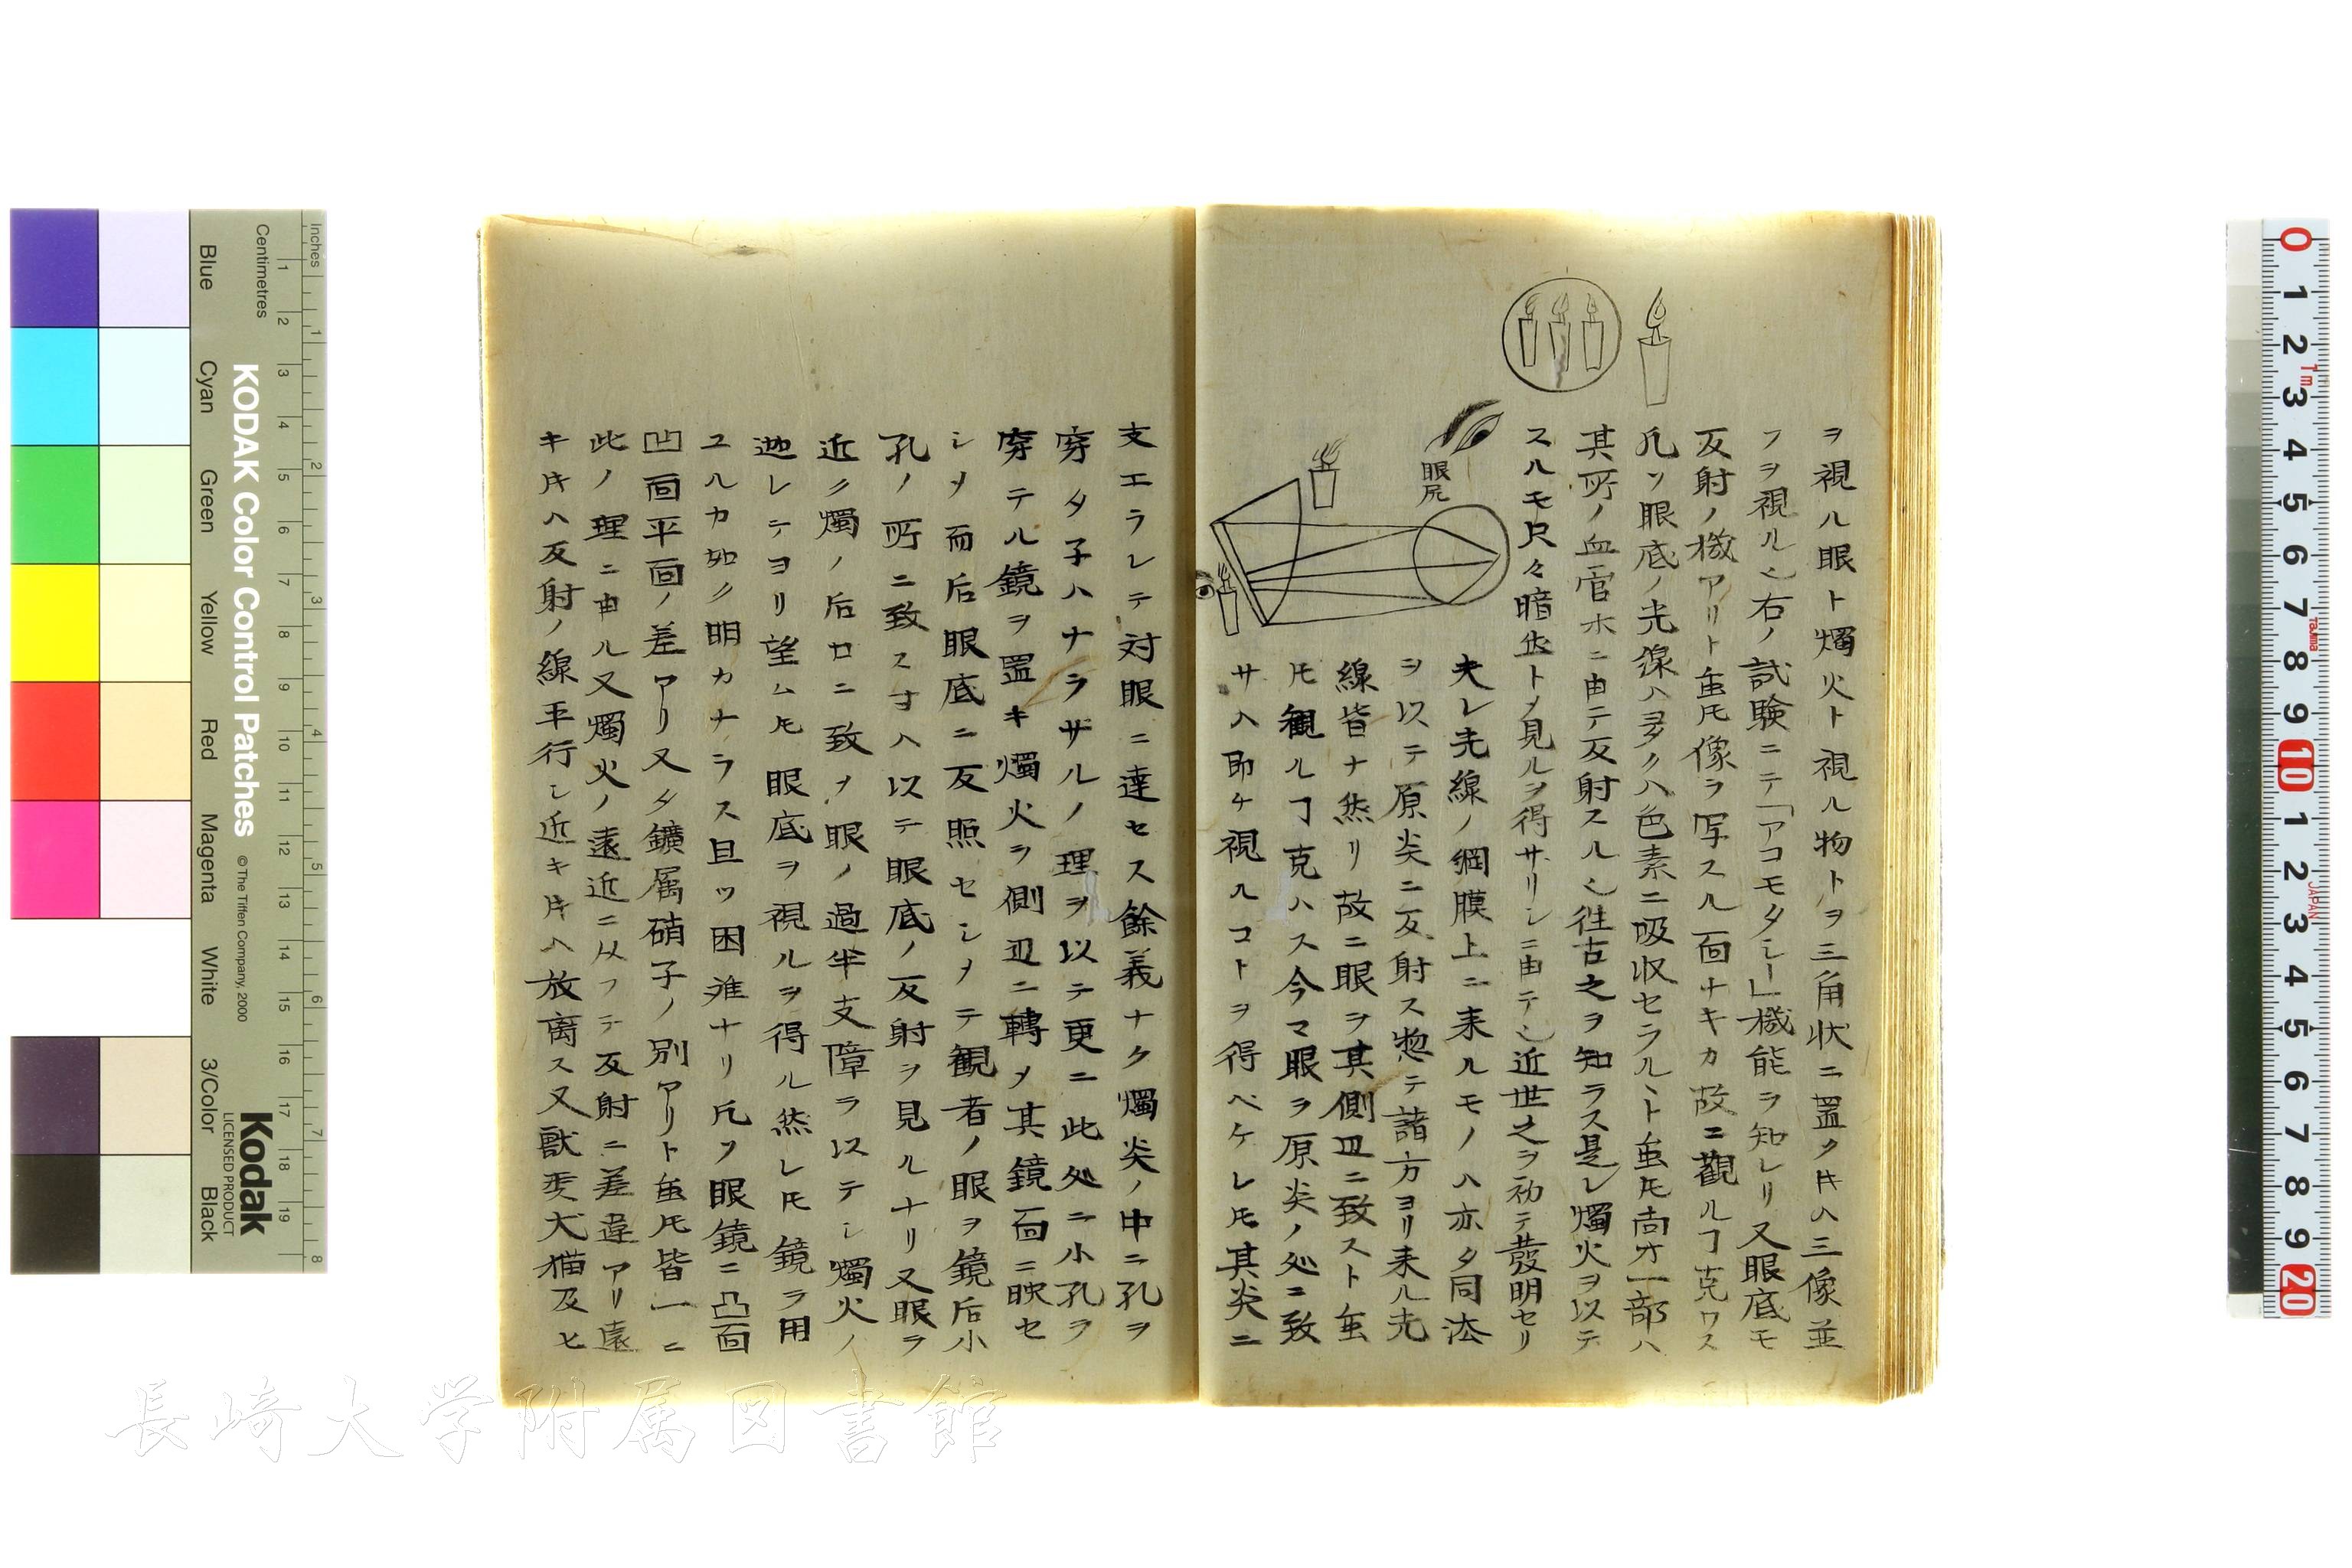 ヲ視ル眼ト燭火ト視ル物トヲ三角状ニ置ク𪜈ハ三像並
フヲ視ル也右ノ試験ニテ「アコモタシー」機能ヲ知レリ又眼底モ
反射ノ機アリト虽𪜈像ヲ写スル面ナキカ故ニ觀ルヿ克ワス
凡ソ眼底ノ光線ハ多クハ色素ニ吸収セラルヽト虽𪜈尚才一部ハ
其所ノ血管ホニ由テ反射スル也徃古之ヲ知ラス是レ燭火ヲ以テ
スルモ只々暗黒トメ見ルヲ得サリシニ由テ也近世之ヲ初テ發明セリ
眼尻
夫レ光線ノ網膜上ニ来ルモノハ亦タ同法
ヲ以テ原炎ニ反射ス惣テ諸方ヨリ来ル光
線皆ナ然リ故ニ眼ヲ其側辺ニ致スト虽
𪜈観ルヿ克ハス今マ眼ヲ原炎ノ処ニ致
サハ即ケ視ルコトヲ得ベケレ𪜈其炎ニ
支エラレテ対眼ニ達セス餘義ナク燭炎ノ中ニ孔ヲ
穿タ子ハナラザルノ理ヲ以テ更ニ此処ニ小孔ヲ
穿テル鏡ヲ置キ燭火ヲ側辺ニ轉メ其鏡面ニ映セ
シメ而后眼底ニ反照セシメテ観者ノ眼ヲ鏡后小
孔ノ所ニ致ス寸ハ以テ眼底ノ反射ヲ見ルナリ又眼ヲ
近ク燭ノ后ロニ致メ眼ノ過半支障ヲ以テシ燭火ノ
迯レテヨリ望ム𪜈眼底ヲ視ルヲ得ル然レ𪜈鏡ヲ用
ユルカ如ク明カナラス且ツ困难ナリ凡ソ眼鏡ニ凸面
凹面平面ノ差アリ又タ鑛属硝子ノ別アリト虽𪜈皆一ニ
此ノ理ニ由ル又燭火ノ遠近ニ从フテ反射ニ差違アリ遠
キ𪜈ハ反射ノ線平行シ近キ𪜈ハ放离ス又獸类犬猫及ヒ
KODAK Color Control Patches
© The Tiffen Company, 2000
Kodak
LICENSED PRODUCT
Inches
Centimetres
Blue
Cyan
Green
Yellow
Red
Magenta
White
3/Color
Black
1 2 3 4 5 6 7 8 9 10 11 12 13 14 15 16 17 18 19
1 2 3 4 5 6 7 8
0 1 2 3 4 5 6 7 8 9 10 1 2 3 4 5 6 7 8 9 20
1m
Tajima
JAPAN
長崎大学附属図書館